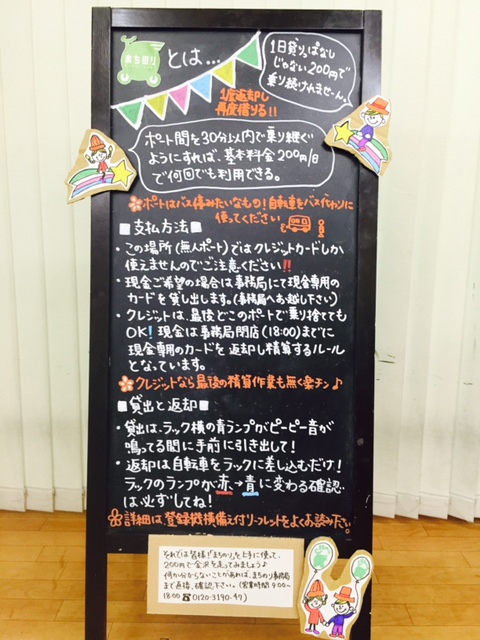 まち乗り
とは…
1日貸りっぱなし
じゃない200円で
乗り続けれませーん。
1度返却し
再度借りる!!
ポート間を30分以内で乗り継ぐ
ようにすれば、基本料金200円/日
で何回でも利用できる。
ポートはバス停みたいなもの!自転車をバス代わりに
使ってください
■支払方法■
・この場所(無人ポート)ではクレジットカードしか
使えませんのでご注意ください!!
・現金ご希望の場合は事務局にて現金専用の
カードを貸し出します。(事務局へお越し下さい)
・クレジットは、最後どこのポートで乗り捨てても
OK!現金は事務局閉店(18:00)までに
現金専用のカードを返却し精算するルール
となっています。
クレジットなら最後の積算作業も無く楽チン♪
■貸出と返却■
・貸出は、ラック横の青ランプがピーピー音が
鳴ってる間に手前に引き出して!
・返却は自転車をラックに差し込むだけ!
ラックのランプが赤→青に変わる確認
は必ずしてね!
詳細は登録機横備え付リーフレットをよくお読み下さい。
それでは皆様!「まちのり」を上手に使って、
200円で金沢を走ってみましょう♪
何か分からないことがあれば、まちのり事務局
まで直接、確認下さい。(営業時間9:00〜
18:00 ☎0120-3190-47)